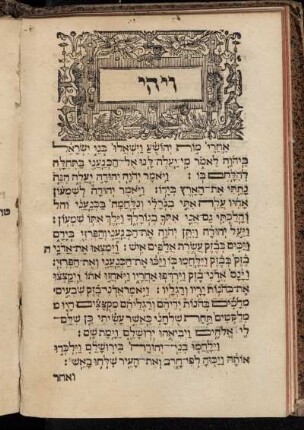 ויהי
אחרי מות יהושע וישאלו בני ישראל
ביהוה לאמר מי יעלה לנו אל־הכנעני בתחלה
להלחם בו׃ ויאמר יהוה יהודה יעלה הנה
נתתי את־הארץ בידו׃ ויאמר יהודה לשמעון
אחיו עלה אתי בגרלי ונלחמה בכנעני והל
והלכתי גם אני אתך בגורלך וילך אתו שמעון׃
ויעל יהודה ויתן יהוה את־הכנעני והפרזי בידם
ויכום בבזק עשרת אלפים איש׃ וימצאו את־אדני
בזק בבזק וילחמו בו ויכו את־הכנעני ואת־הפרזי׃
וינס אדני בזק וירדפו אחריו ויאחזו אותו ויקצצו
את־בהנות ידיו ורגליו׃ ויאמר אדני־בזק שבעים
מלכים בהנות ידיהם ורגליהם מקצצים היו
מלקטים תחת שלחני כאשר עשיתי כן שלם־
לי אלהים ויביאהו ירושלם וימת שם׃
וילחמו בני־יהודה בירושלם וילכדו
אותה ויכוה לפי־חרב ואת־העיר שלחו באש׃
ואחר